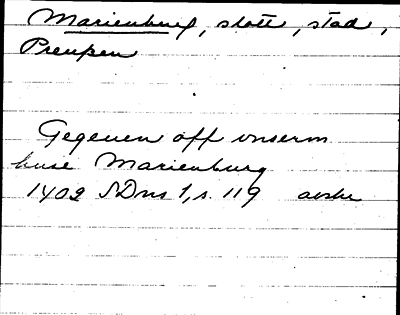 Marienburg, slott, stad,
Preussen
Gegeven off vnserm
huse Marienburg
1402 SDns 1, s. 119 avskr